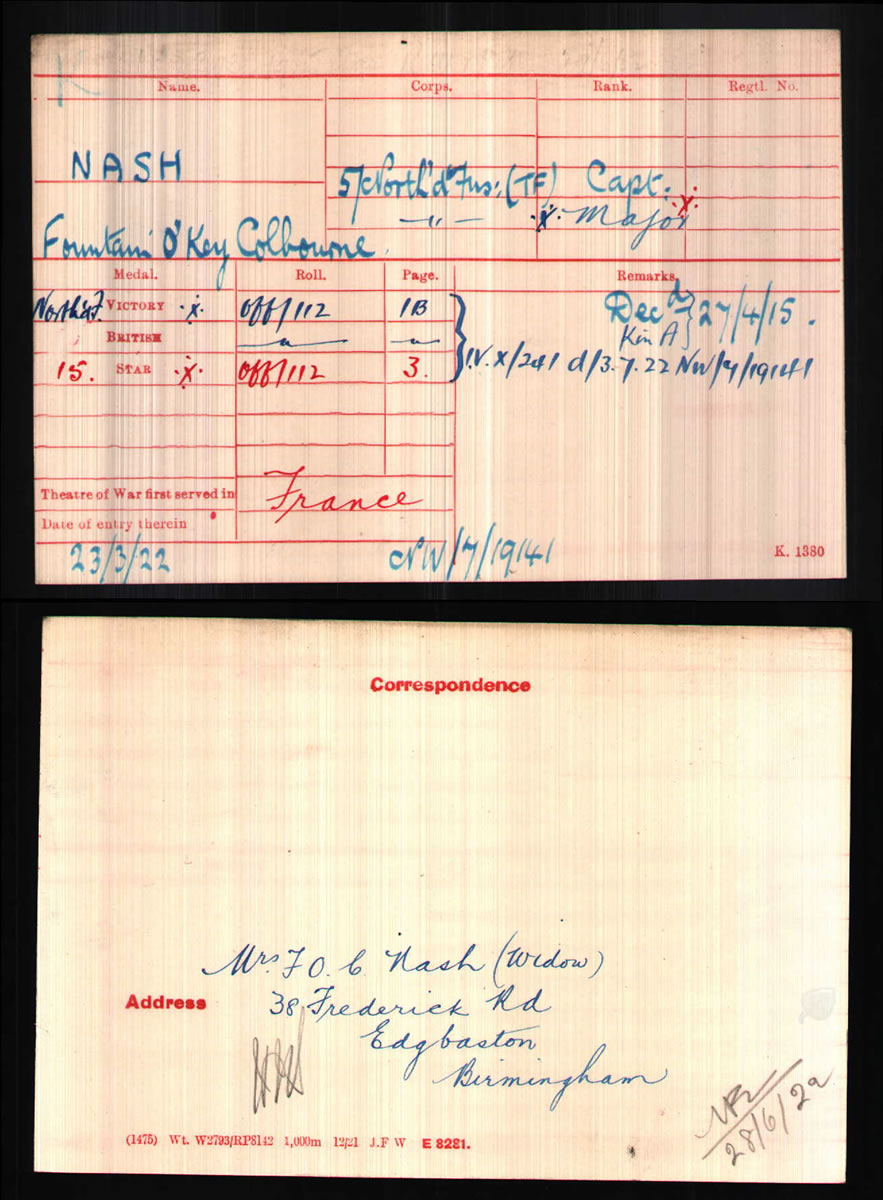 Name. Corps. Rank. Regtl. No.
NASH 5/North'd Fus: (TF) Capt.
—"— Major
Fountain O'Key Colbourne
Medal. Roll. Page. Remarks.
North'd F. VICTORY Off/112 1B Decd 27/4/15.
BRITISH —"— —"— Kin A
15. STAR Off/112 3. I.V. X/241 d/3.7.22 NW/7/19141
Theatre of War first served in France
Date of entry therein
23/3/22 NW/7/19141 K. 1380
Correspondence
Mrs F O. C Nash (Widow)
Address 38 Frederick Rd
Edgbaston
Birmingham
28/6/22
(1475) Wt. W2793/RP8142 1,000m 12/21 J.F W E 8281.